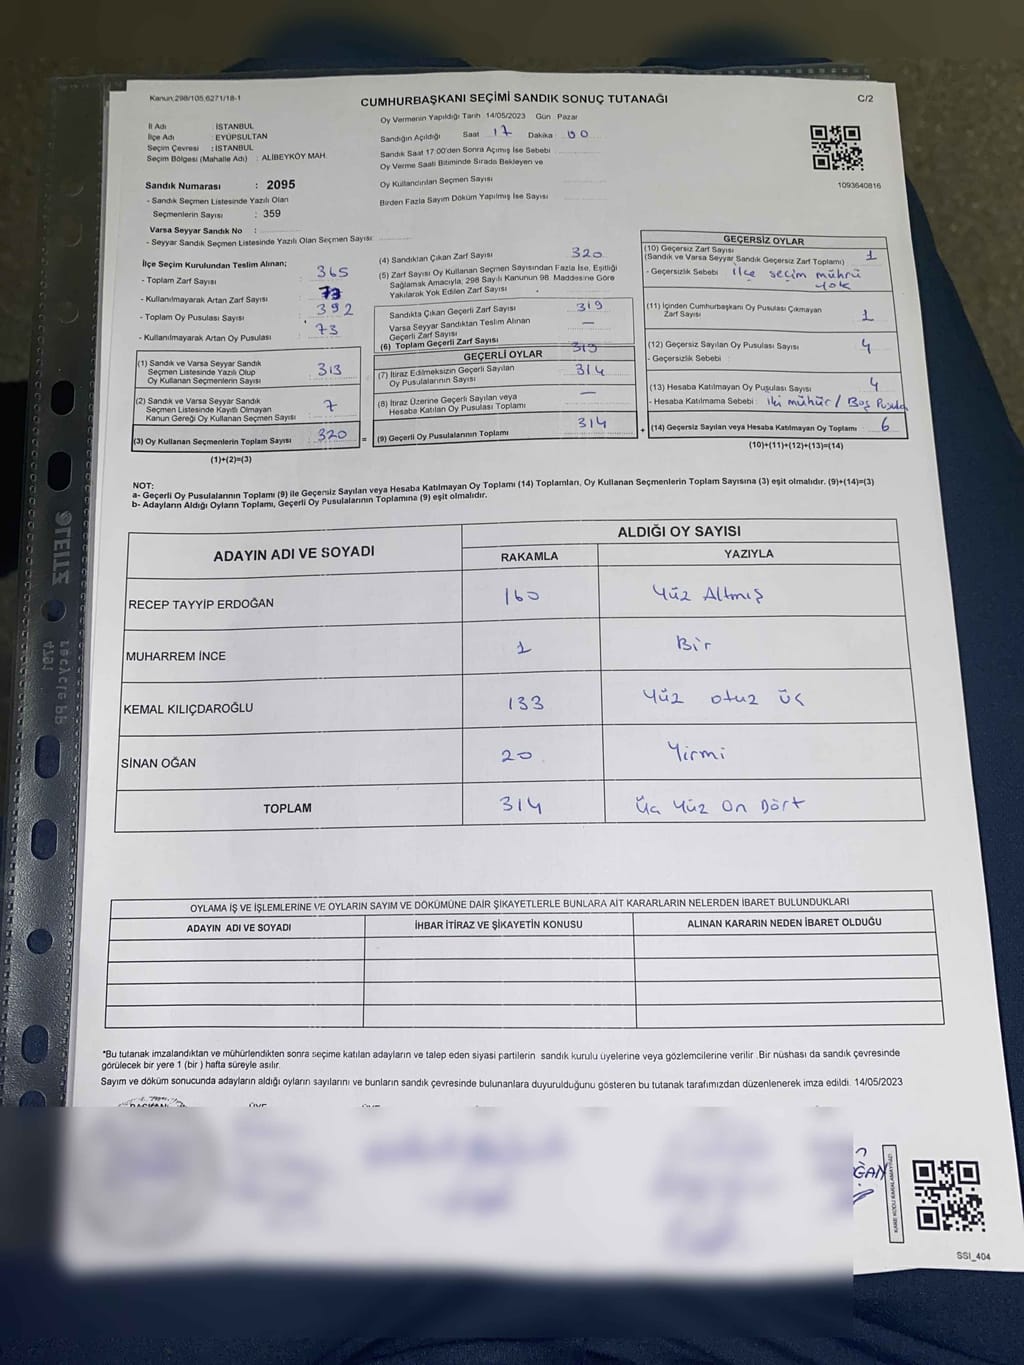 Kanun:298/105,6271/18-1
CUMHURBAŞKANI SEÇİMİ SANDIK SONUÇ TUTANAĞI
C/2
İl Adı : İSTANBUL
İlçe Adı : EYÜPSULTAN
Seçim Çevresi : İSTANBUL
Seçim Bölgesi (Mahalle Adı) : ALİBEYKÖY MAH.
Oy Vermenin Yapıldığı Tarih 14/05/2023 Gün : Pazar
Sandığın Açıldığı Saat 17 Dakika : 00
Sandık Saat 17:00'den Sonra Açımış İse Sebebi
Oy Verme Saati Bitiminde Sırada Bekleyen ve
Oy Kullandırılan Seçmen Sayısı
Birden Fazla Sayım Döküm Yapılmış İse Sayısı
1093640816
Sandık Numarası : 2095
- Sandık Seçmen Listesinde Yazılı Olan
Seçmenlerin Sayısı : 359
Varsa Seyyar Sandık No :
- Seyyar Sandık Seçmen Listesinde Yazılı Olan Seçmen Sayısı:
İlçe Seçim Kurulundan Teslim Alınan;
- Toplam Zarf Sayısı 365
- Kullanılmayarak Artan Zarf Sayısı 73
- Toplam Oy Pusulası Sayısı 392
- Kullanılmayarak Artan Oy Pusulası 73
(1) Sandık ve Varsa Seyyar Sandık
Seçmen Listesinde Yazılı Olup
Oy Kullanan Seçmenlerin Sayısı 313
(2) Sandık ve Varsa Seyyar Sandık
Seçmen Listesinde Kayıtlı Olmayan
Kanun Gereği Oy Kullanan Seçmen Sayısı 7
(3) Oy Kullanan Seçmenlerin Toplam Sayısı 320 =
(1)+(2)=(3)
(4) Sandıktan Çıkan Zarf Sayısı 320
(5) Zarf Sayısı Oy Kullanan Seçmen Sayısından Fazla İse, Eşitliği
Sağlamak Amacıyla, 298 Sayılı Kanunun 98. Maddesine Göre
Yakılarak Yok Edilen Zarf Sayısı
Sandıkta Çıkan Geçerli Zarf Sayısı 319
Varsa Seyyar Sandıktan Teslim Alınan
Geçerli Zarf Sayısı —
(6) Toplam Geçerli Zarf Sayısı 319
GEÇERLİ OYLAR
(7) İtiraz Edilmeksizin Geçerli Sayılan
Oy Pusulalarının Sayısı 314
(8) İtiraz Üzerine Geçerli Sayılan veya
Hesaba Katılan Oy Pusulası Toplamı —
(9) Geçerli Oy Pusulalarının Toplamı 314 +
GEÇERSİZ OYLAR
(10) Geçersiz Zarf Sayısı
(Sandık ve Varsa Seyyar Sandık Geçersiz Zarf Toplamı) 1
- Geçersizlik Sebebi : İlçe seçim mührü
yok
(11) İçinden Cumhurbaşkanı Oy Pusulası Çıkmayan
Zarf Sayısı 1
(12) Geçersiz Sayılan Oy Pusulası Sayısı 4
- Geçersizlik Sebebi :
(13) Hesaba Katılmayan Oy Pusulası Sayısı 4
- Hesaba Katılmama Sebebi : iki mühür / Boş Pusula
(14) Geçersiz Sayılan veya Hesaba Katılmayan Oy Toplamı 6
(10)+(11)+(12)+(13)=(14)
NOT:
a- Geçerli Oy Pusulalarının Toplamı (9) ile Geçersiz Sayılan veya Hesaba Katılmayan Oy Toplamı (14) Toplamları, Oy Kullanan Seçmenlerin Toplam Sayısına (3) eşit olmalıdır. (9)+(14)=(3)
b- Adayların Aldığı Oyların Toplamı, Geçerli Oy Pusulalarının Toplamına (9) eşit olmalıdır.
ADAYIN ADI VE SOYADI
ALDIĞI OY SAYISI
RAKAMLA YAZIYLA
RECEP TAYYİP ERDOĞAN 160 Yüz Altmış
MUHARREM İNCE 1 Bir
KEMAL KILIÇDAROĞLU 133 Yüz otuz üç
SİNAN OĞAN 20 Yirmi
TOPLAM 314 Üç Yüz On Dört
OYLAMA İŞ VE İŞLEMLERİNE VE OYLARIN SAYIM VE DÖKÜMÜNE DAİR ŞİKAYETLERLE BUNLARA AİT KARARLARIN NELERDEN İBARET BULUNDUKLARI
ADAYIN ADI VE SOYADI İHBAR İTİRAZ VE ŞİKAYETİN KONUSU ALINAN KARARIN NEDEN İBARET OLDUĞU
*Bu tutanak imzalandıktan ve mühürlendikten sonra seçime katılan adayların ve talep eden siyasi partilerin sandık kurulu üyelerine veya gözlemcilerine verilir. Bir nüshası da sandık çevresinde
görülecek bir yere 1 (bir) hafta süreyle asılır.
Sayım ve döküm sonucunda adayların aldığı oyların sayılarını ve bunların sandık çevresinde bulunanlara duyurulduğunu gösteren bu tutanak tarafımızdan düzenlenerek imza edildi. 14/05/2023
KARE KODU KARALAMAYINIZ
SSI_404
LEITZ
recycle PP
4791